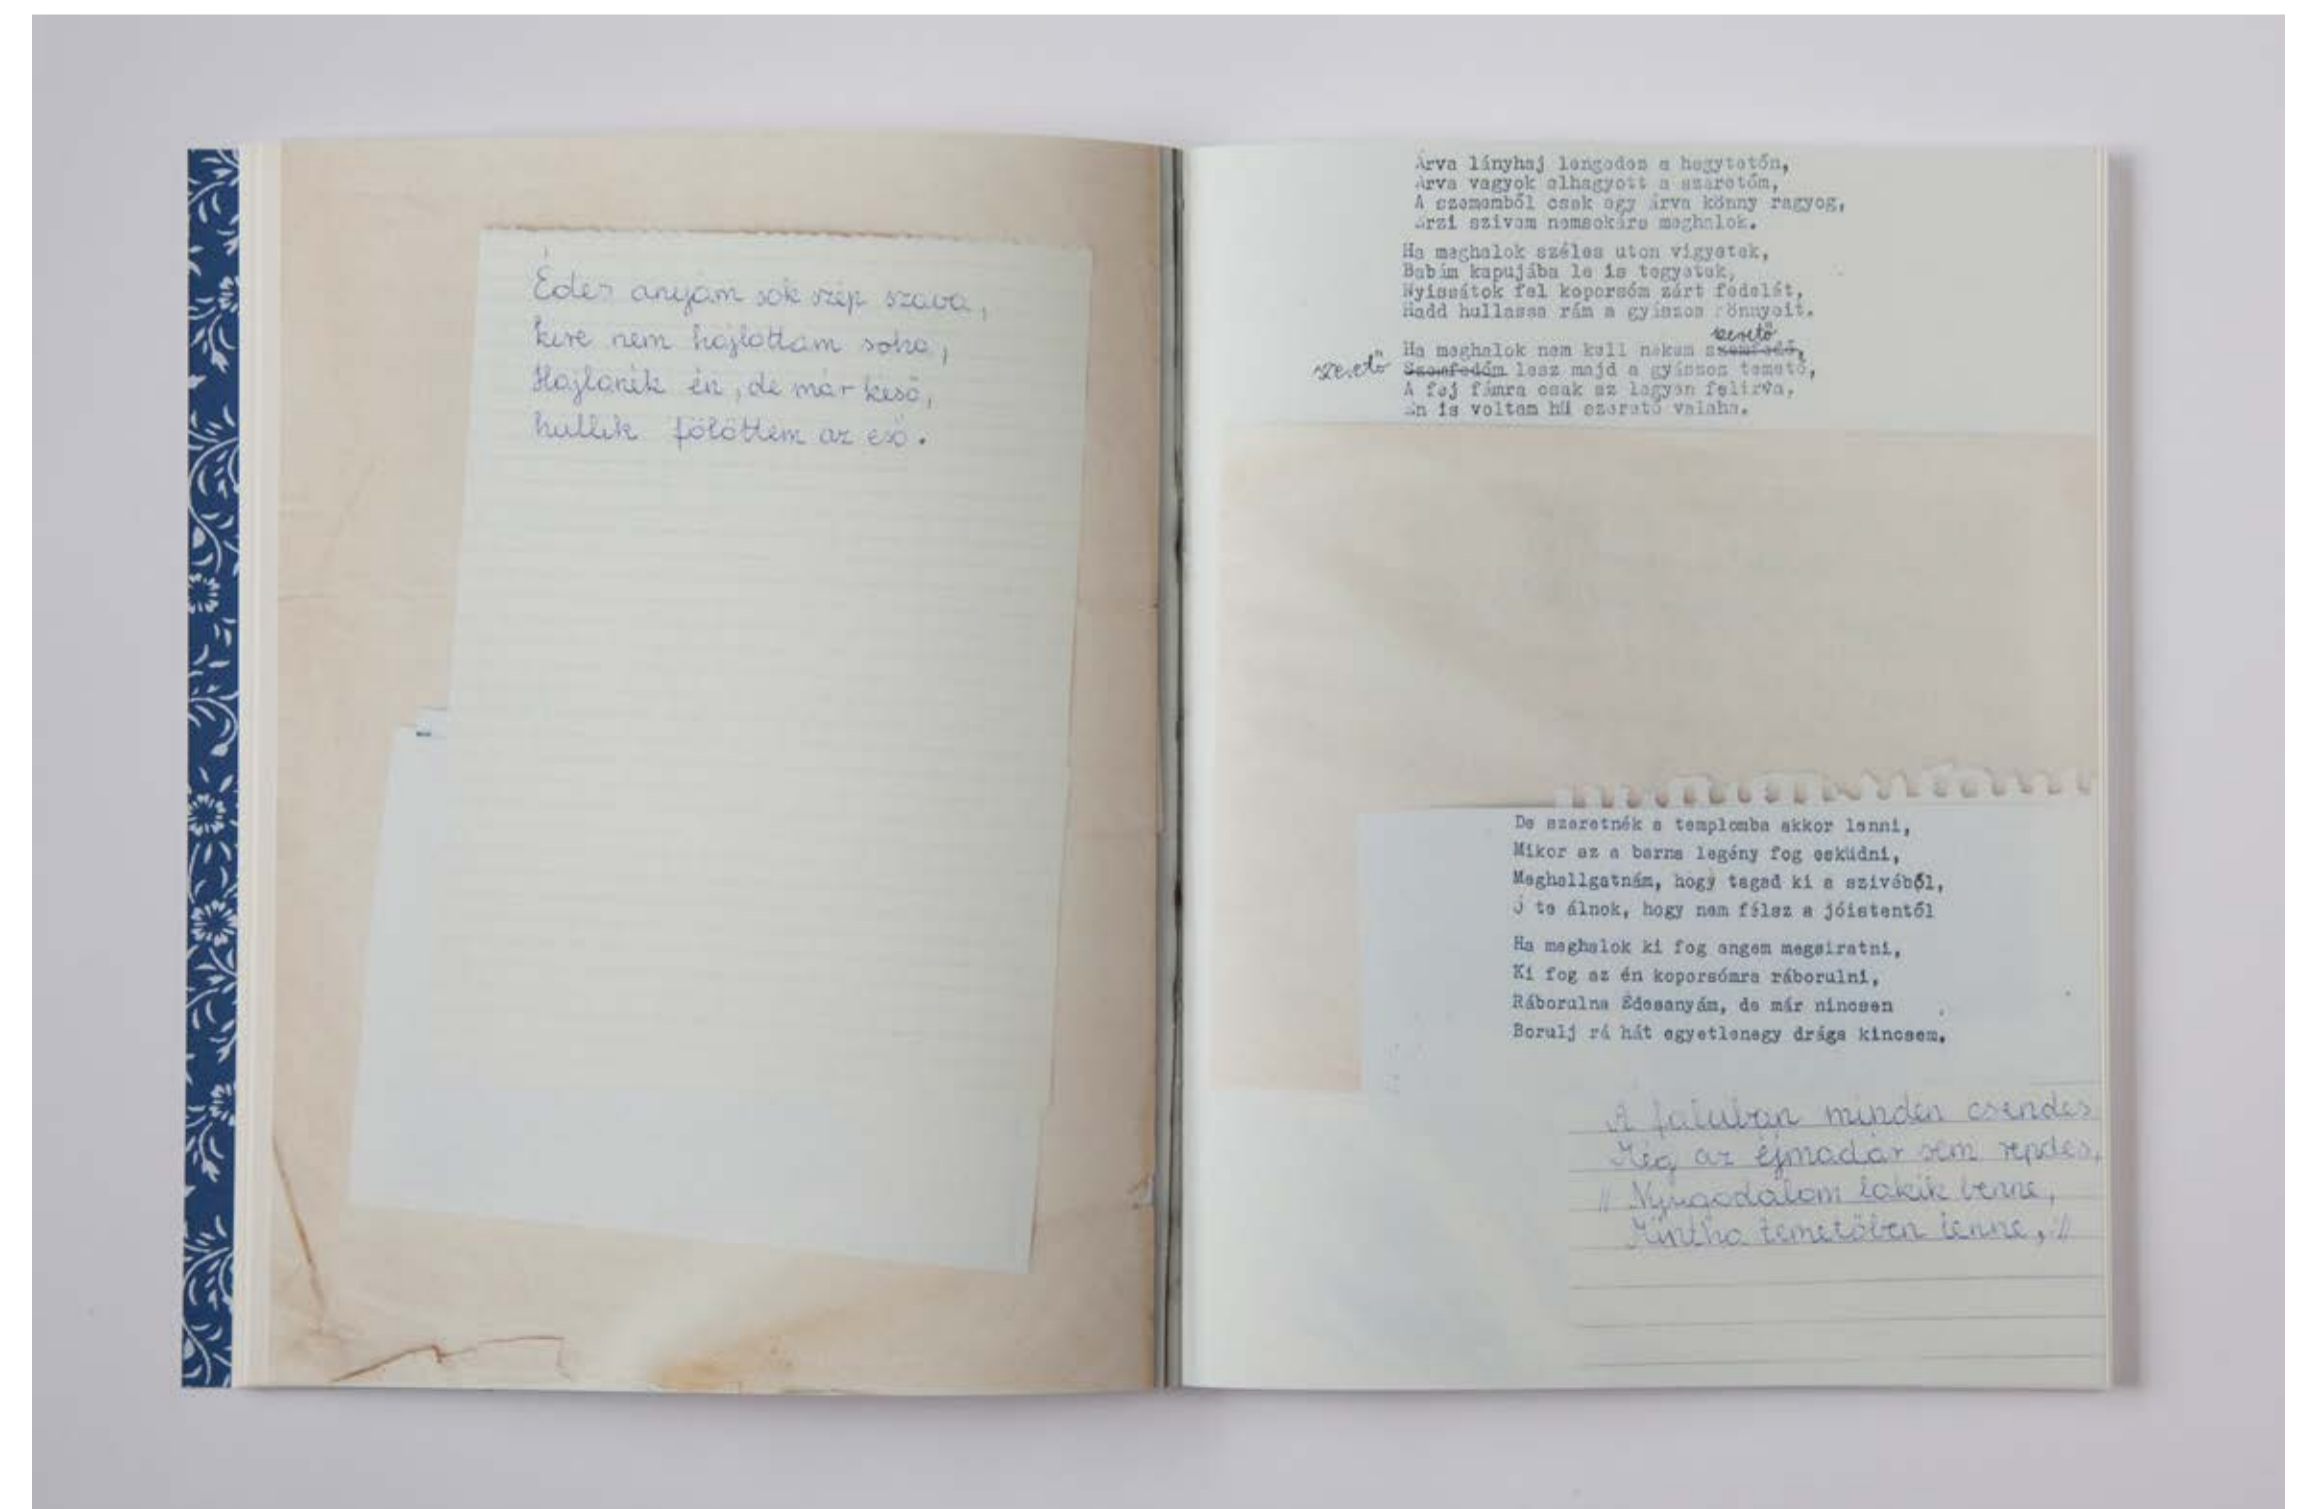 Édes anyám sok szép szava,
kire nem hajlottam soha,
Hajlanék én, de már késő,
hullik fölöttem az eső.
Árva lányhaj lengedez a hegytetőn,
Árva vagyok elhagyott a szeretőm,
A szememből csak egy árva könny ragyog,
Érzi szivem nemsokára meghalok.
Ha meghalok széles uton vigyetek,
Babám kapujába le is tegyetek,
Nyissátok fel koporsóm zárt fedelét,
Hadd hullassa rám a gyászos könnyeit.
szerető
Ha meghalok nem kell nekem szemfedő,
szerető Szemfedőm lesz majd a gyászos temető,
A fej fámra csak az legyen felirva,
Én is voltam hű szerető valaha.
De szeretnék a templomba akkor lenni,
Mikor az a barna legény fog esküdni,
Meghallgatnám, hogy tagad ki a szivéből,
Ó te álnok, hogy nem félsz a jóistentől
Ha meghalok ki fog engem megsiratni,
Ki fog az én koporsómra ráborulni,
Ráborulna Édesanyám, de már nincsen
Borulj rá hát egyetlenegy drága kincsem.
A faluban minden csendes
Még az éjmadár sem repdes,
// Nyugodalom lakik benne,
Mintha temetőben lenne, //